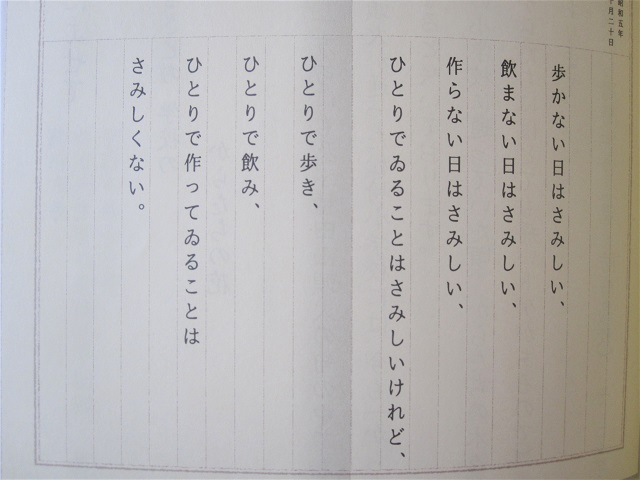 昭和五年
十月二十日
歩かない日はさみしい、
飲まない日はさみしい、
作らない日はさみしい、
ひとりでゐることはさみしいけれど、
ひとりで歩き、
ひとりで飲み、
ひとりで作ってゐることは
さみしくない。